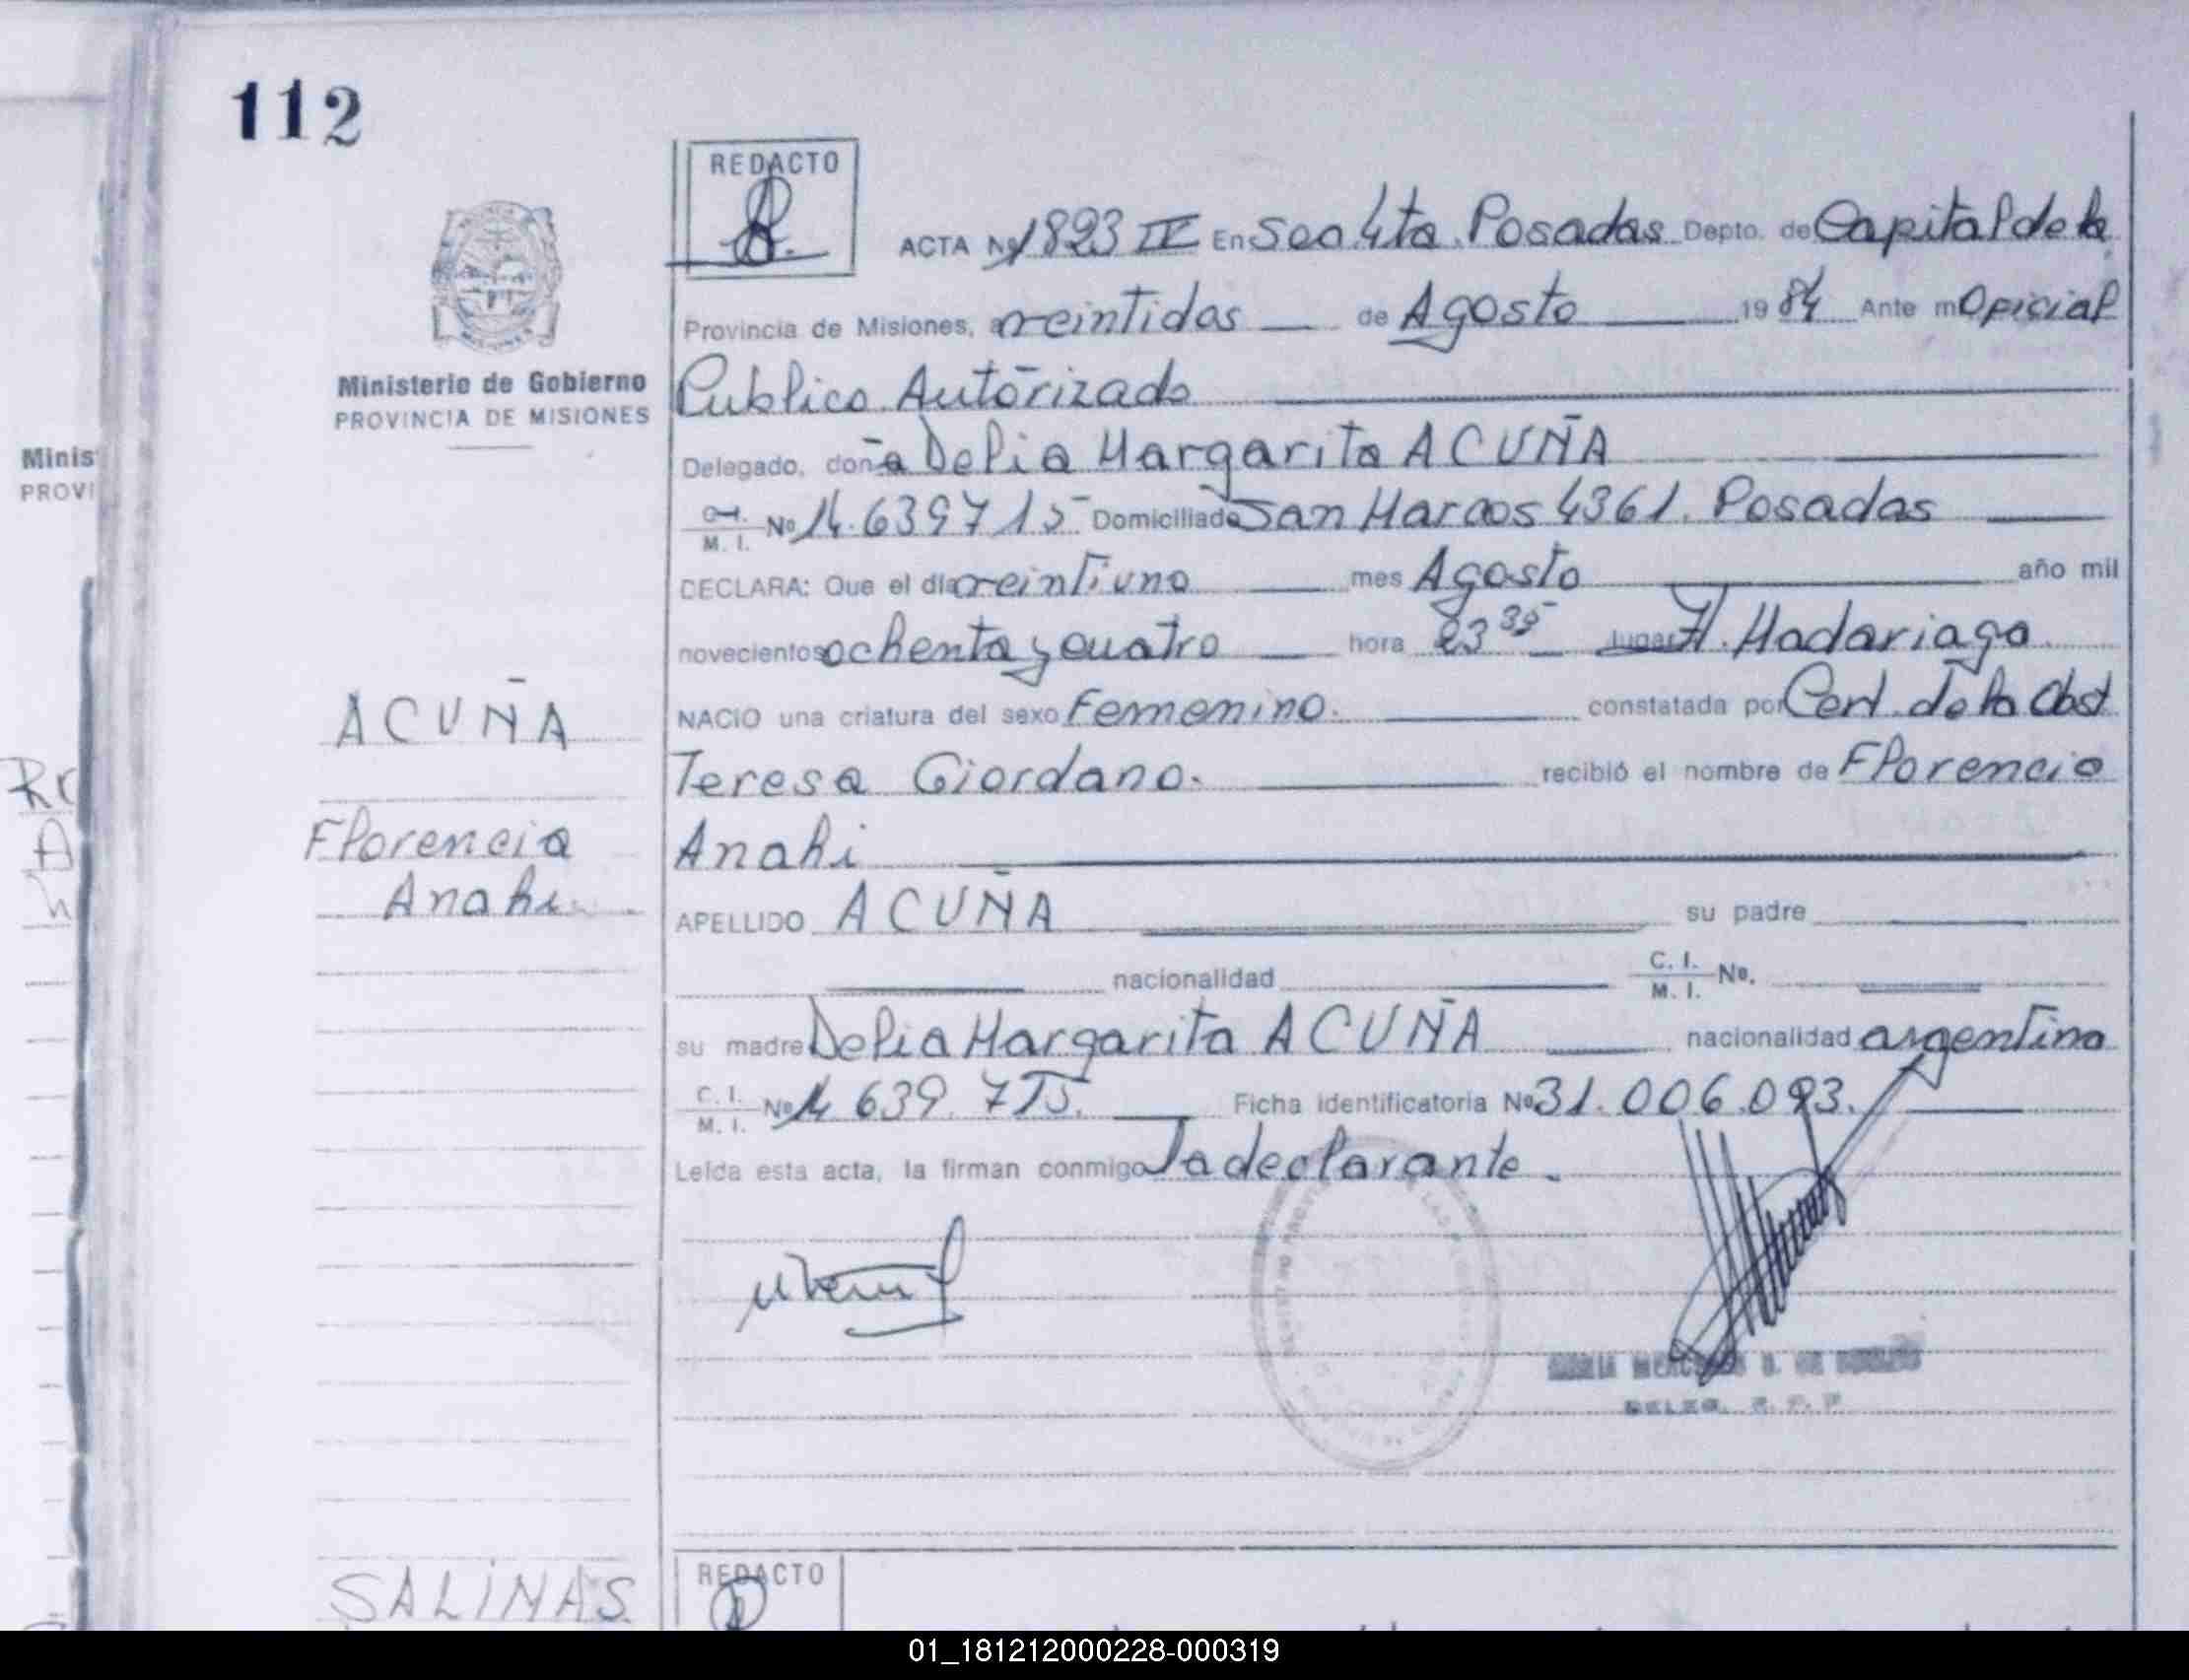 112
REDACTO
ACTA Nº 1823 IV En Sec 4ta. Posadas Depto. de Capital de la
Provincia de Misiones, a veintidos de Agosto 1984 Ante mi Oficial
Ministerio de Gobierno
PROVINCIA DE MISIONES
Publico Autorizado
Delegado, doña Delia Margarita ACUÑA
M. I. Nº 14.639715 Domiciliado San Marcos 4361. Posadas
Minis
PROVI
DECLARA: Que el día veintiuno mes Agosto año mil
novecientos ochenta y cuatro hora 23 35 lugar H. Madariaga
ACUÑA
NACIO una criatura del sexo Femenino. constatada por Cert. de la Obst
Teresa Giordano. recibió el nombre de Florencia
Florencia
Anahi
Anahi
APELLIDO ACUÑA su padre
nacionalidad C. I. M. I. Nº.
su madre Delia Margarita ACUÑA nacionalidad argentina
C. I. M. I. Nº 14 639. 715. Ficha identificatoria Nº 31.006.093.
Leída esta acta, la firman conmigo la declarante.
DELEG. R. P. P
SALINAS
REDACTO
01_181212000228-000319